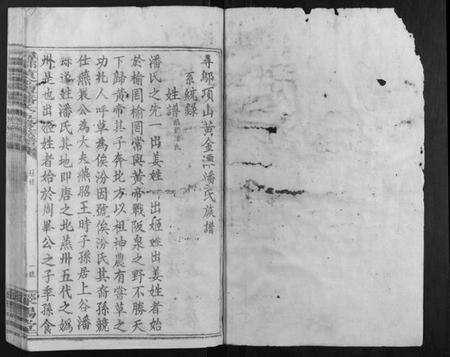 尋鄔項山黃金潭潘氏族譜
系統錄
姓譜
潘氏之先一出姜姓一出姬姓出姜姓者始
於榆罔榆罔嘗與黃帝戰阪泉之野不勝天
下歸黃帝其子奔北方以祖神農有嘗草之
功托人呼草為俟汾因號俟汾氏其裔孫競
仕燕襄公為大夫燕昭王時子孫居上谷潘
縣遂姓潘氏其地即唐之北燕州五代之媯
州是也出姬姓者始於周畢公之子季孫食